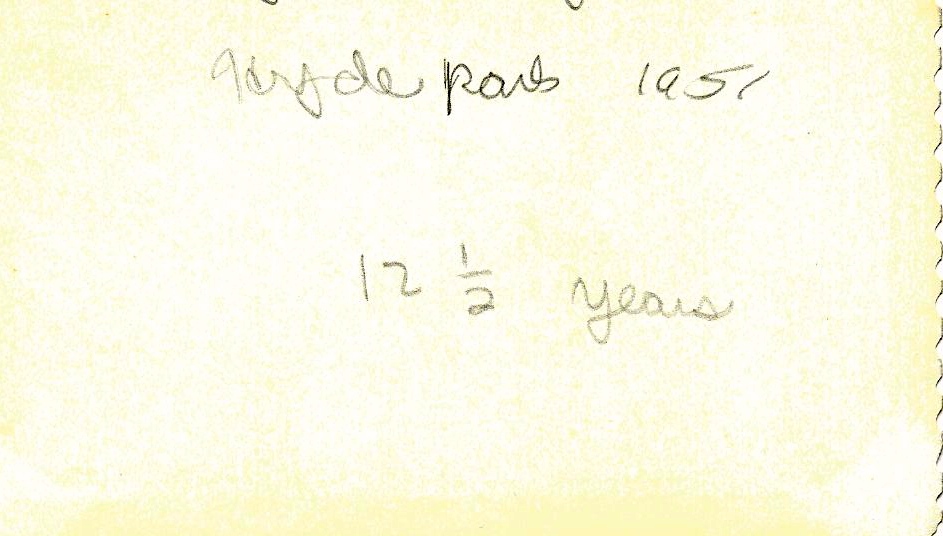 Hyde Park 1951
12 ½ years